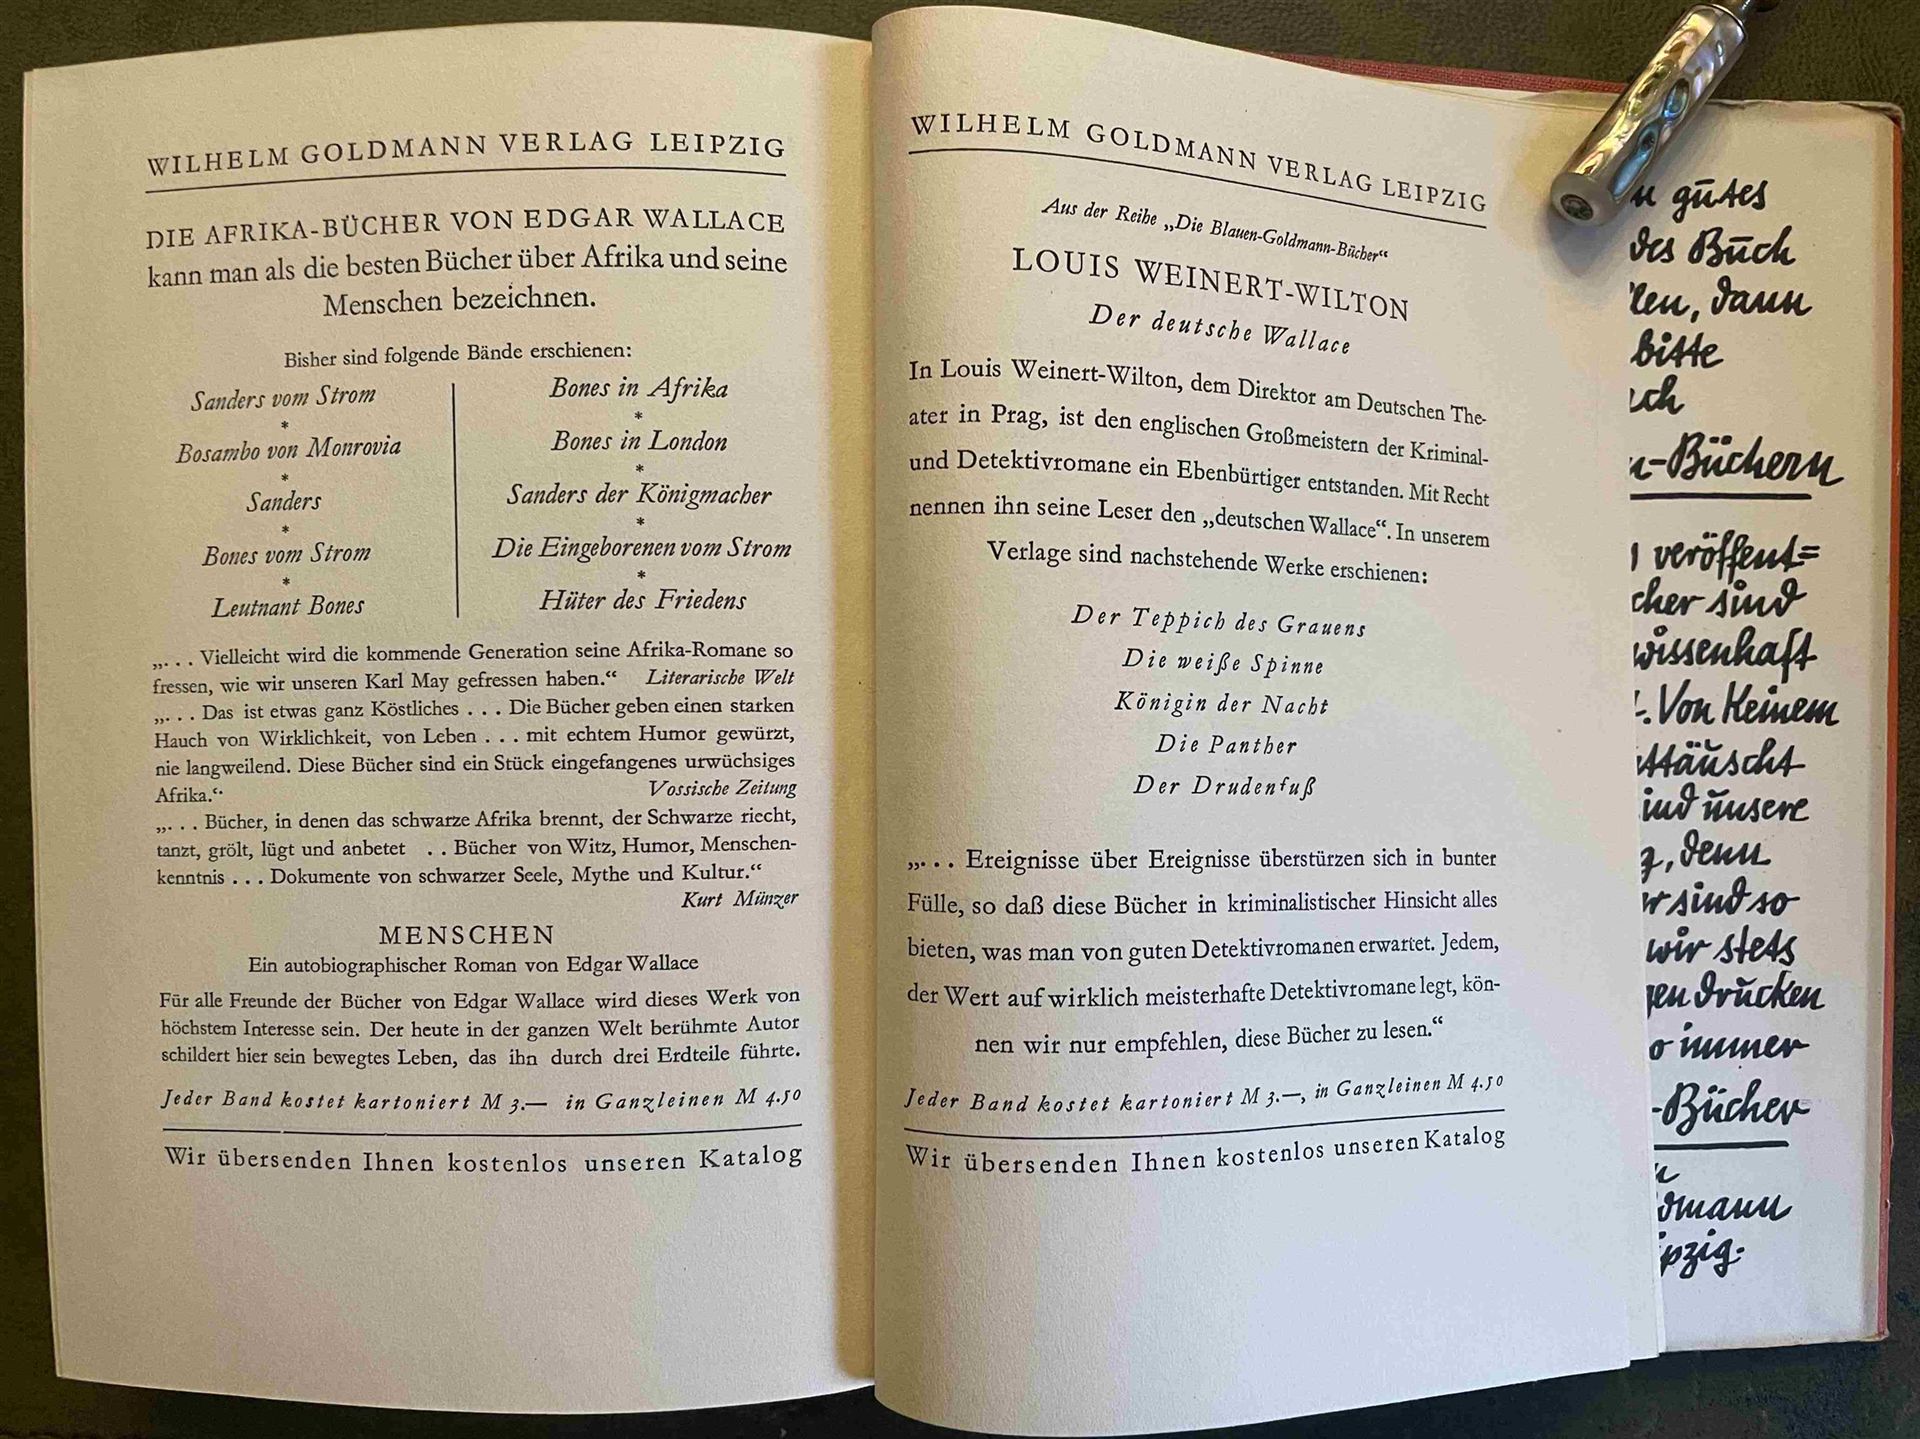 WILHELM GOLDMANN VERLAG LEIPZIG
DIE AFRIKA-BÜCHER VON EDGAR WALLACE
kann man als die besten Bücher über Afrika und seine
Menschen bezeichnen.
Bisher sind folgende Bände erschienen:
Sanders vom Strom
*
Bosambo von Monrovia
*
Sanders
*
Bones vom Strom
*
Leutnant Bones
Bones in Afrika
*
Bones in London
*
Sanders der Königmacher
*
Die Eingeborenen vom Strom
*
Hüter des Friedens
„. . . Vielleicht wird die kommende Generation seine Afrika-Romane so
fressen, wie wir unseren Karl May gefressen haben.“ Literarische Welt
„. . . Das ist etwas ganz Köstliches . . . Die Bücher geben einen starken
Hauch von Wirklichkeit, von Leben . . . mit echtem Humor gewürzt,
nie langweilend. Diese Bücher sind ein Stück eingefangenes urwüchsiges
Afrika.“ Vossische Zeitung
„. . . Bücher, in denen das schwarze Afrika brennt, der Schwarze riecht,
tanzt, grölt, lügt und anbetet . . Bücher von Witz, Humor, Menschen-
kenntnis . . . Dokumente von schwarzer Seele, Mythe und Kultur.“
Kurt Münzer
MENSCHEN
Ein autobiographischer Roman von Edgar Wallace
Für alle Freunde der Bücher von Edgar Wallace wird dieses Werk von
höchstem Interesse sein. Der heute in der ganzen Welt berühmte Autor
schildert hier sein bewegtes Leben, das ihn durch drei Erdteile führte.
Jeder Band kostet kartoniert M 3.— in Ganzleinen M 4.50
Wir übersenden Ihnen kostenlos unseren Katalog
WILHELM GOLDMANN VERLAG LEIPZIG
Aus der Reihe „Die Blauen-Goldmann-Bücher“
LOUIS WEINERT-WILTON
Der deutsche Wallace
In Louis Weinert-Wilton, dem Direktor am Deutschen The-
ater in Prag, ist den englischen Großmeistern der Kriminal-
und Detektivromane ein Ebenbürtiger entstanden. Mit Recht
nennen ihn seine Leser den „deutschen Wallace“. In unserem
Verlage sind nachstehende Werke erschienen:
Der Teppich des Grauens
Die weiße Spinne
Königin der Nacht
Die Panther
Der Drudenfuß
„. . . Ereignisse über Ereignisse überstürzen sich in bunter
Fülle, so daß diese Bücher in kriminalistischer Hinsicht alles
bieten, was man von guten Detektivromanen erwartet. Jedem,
der Wert auf wirklich meisterhafte Detektivromane legt, kön-
nen wir nur empfehlen, diese Bücher zu lesen.“
Jeder Band kostet kartoniert M 3.—, in Ganzleinen M 4.50
Wir übersenden Ihnen kostenlos unseren Katalog
gutes
Buch
dann
bitte
-Büchern
veröffent=
sind
wissenhaft
Von Keinem
ttäuscht
unsere
denn
sind so
wir stets
drucken
immer
-Bücher